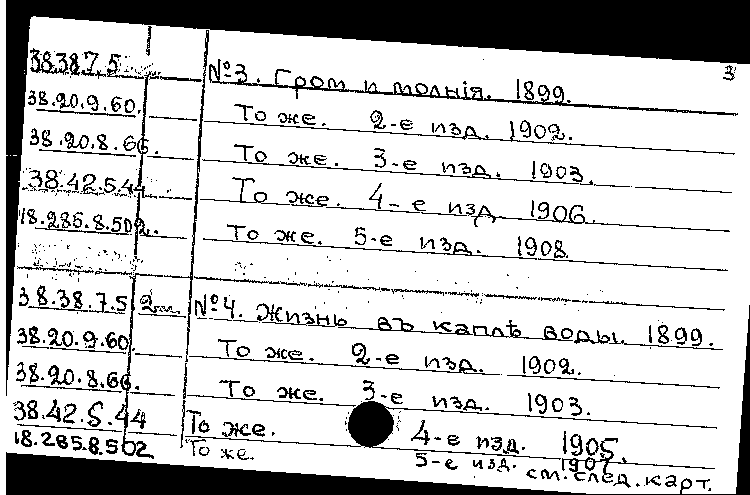 3
38.38.7.5 №3. Гром и молнія. 1899.
38.20.9.60. То же. 2-е изд. 1902.
38.20.8.66. То же. 3-е изд. 1903.
38.42.5.44 То же. 4-е изд. 1906.
18.285.8.502. То же. 5-е изд. 1908.
38.38.7.5 №4. Жизнь въ каплѣ воды. 1899.
38.20.9.60. То же. 2-е изд. 1902.
38.20.8.66. То же. 3-е изд. 1903.
38.42.5.44 То же. 4-е изд. 1905.
18.285.8.502 То же. 5-е изд. 1907.
см. след. карт.